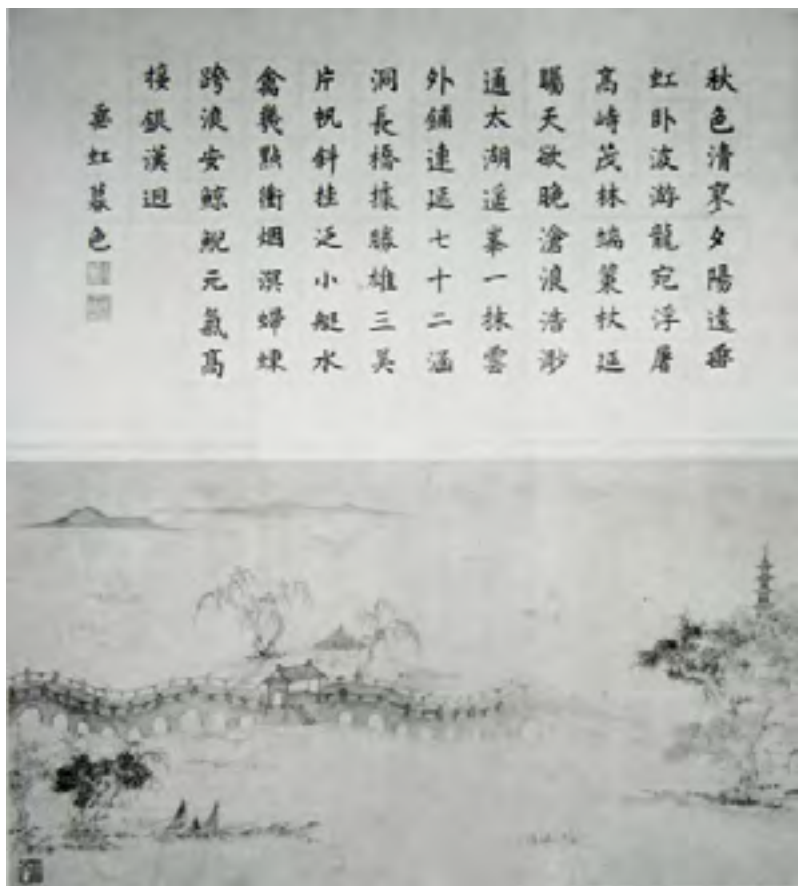 秋色清寒夕陽遠垂
虹卧波游龍宛浮屠
高峙茂林端策杖延
矚天欲晚滄浪浩渺
通太湖遥峯一抹雲
外鋪連延七十二涵
洞長橋據勝雄三吴
片帆斜挂泛小艇水
禽幾點衝烟溟螮蝀
跨浪安鯨鯢元氣高
接銀漢迥
垂虹暮色